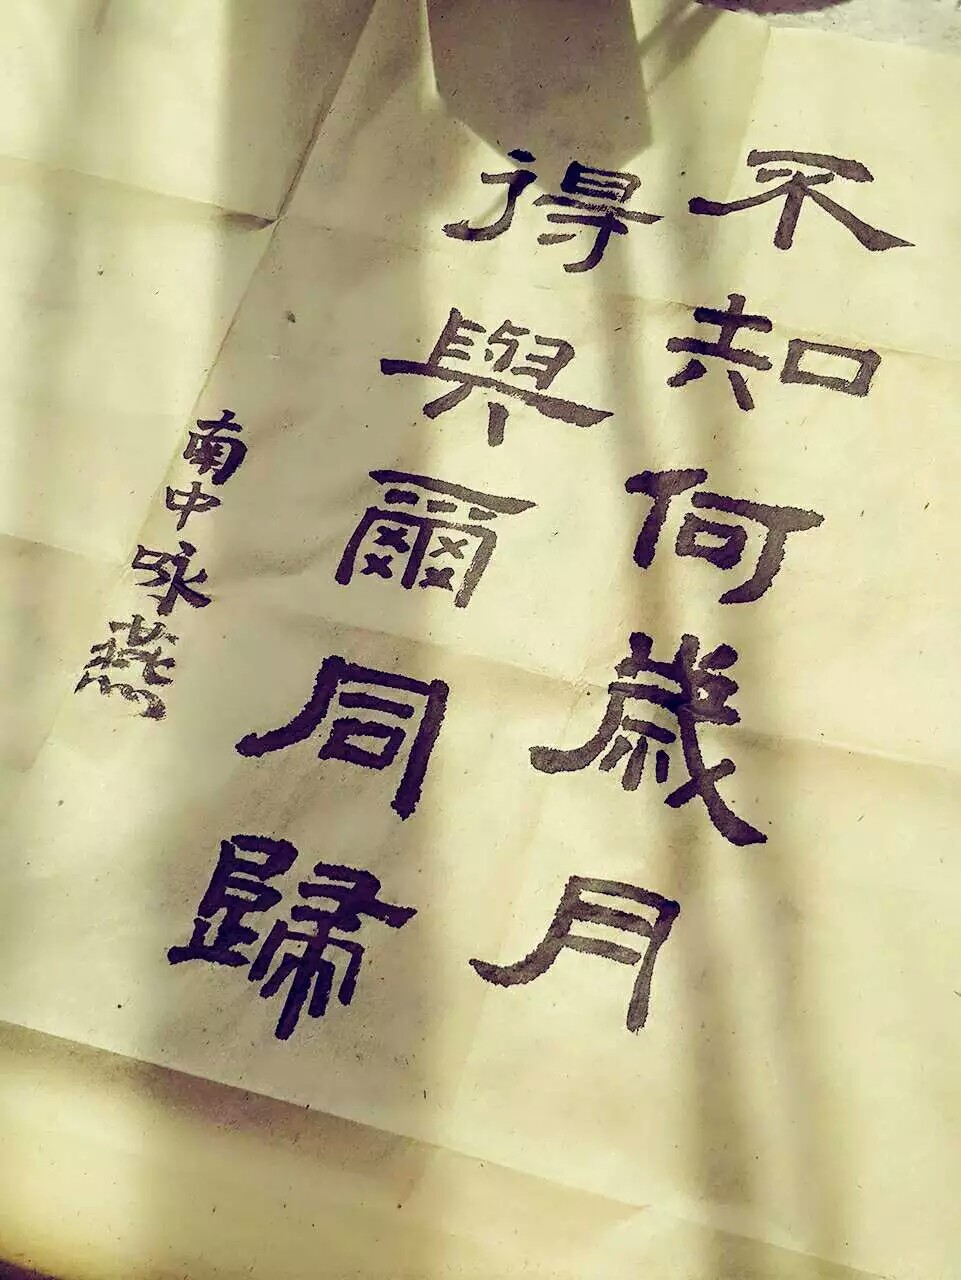 不知何歲月
得與爾同歸
南中咏燕